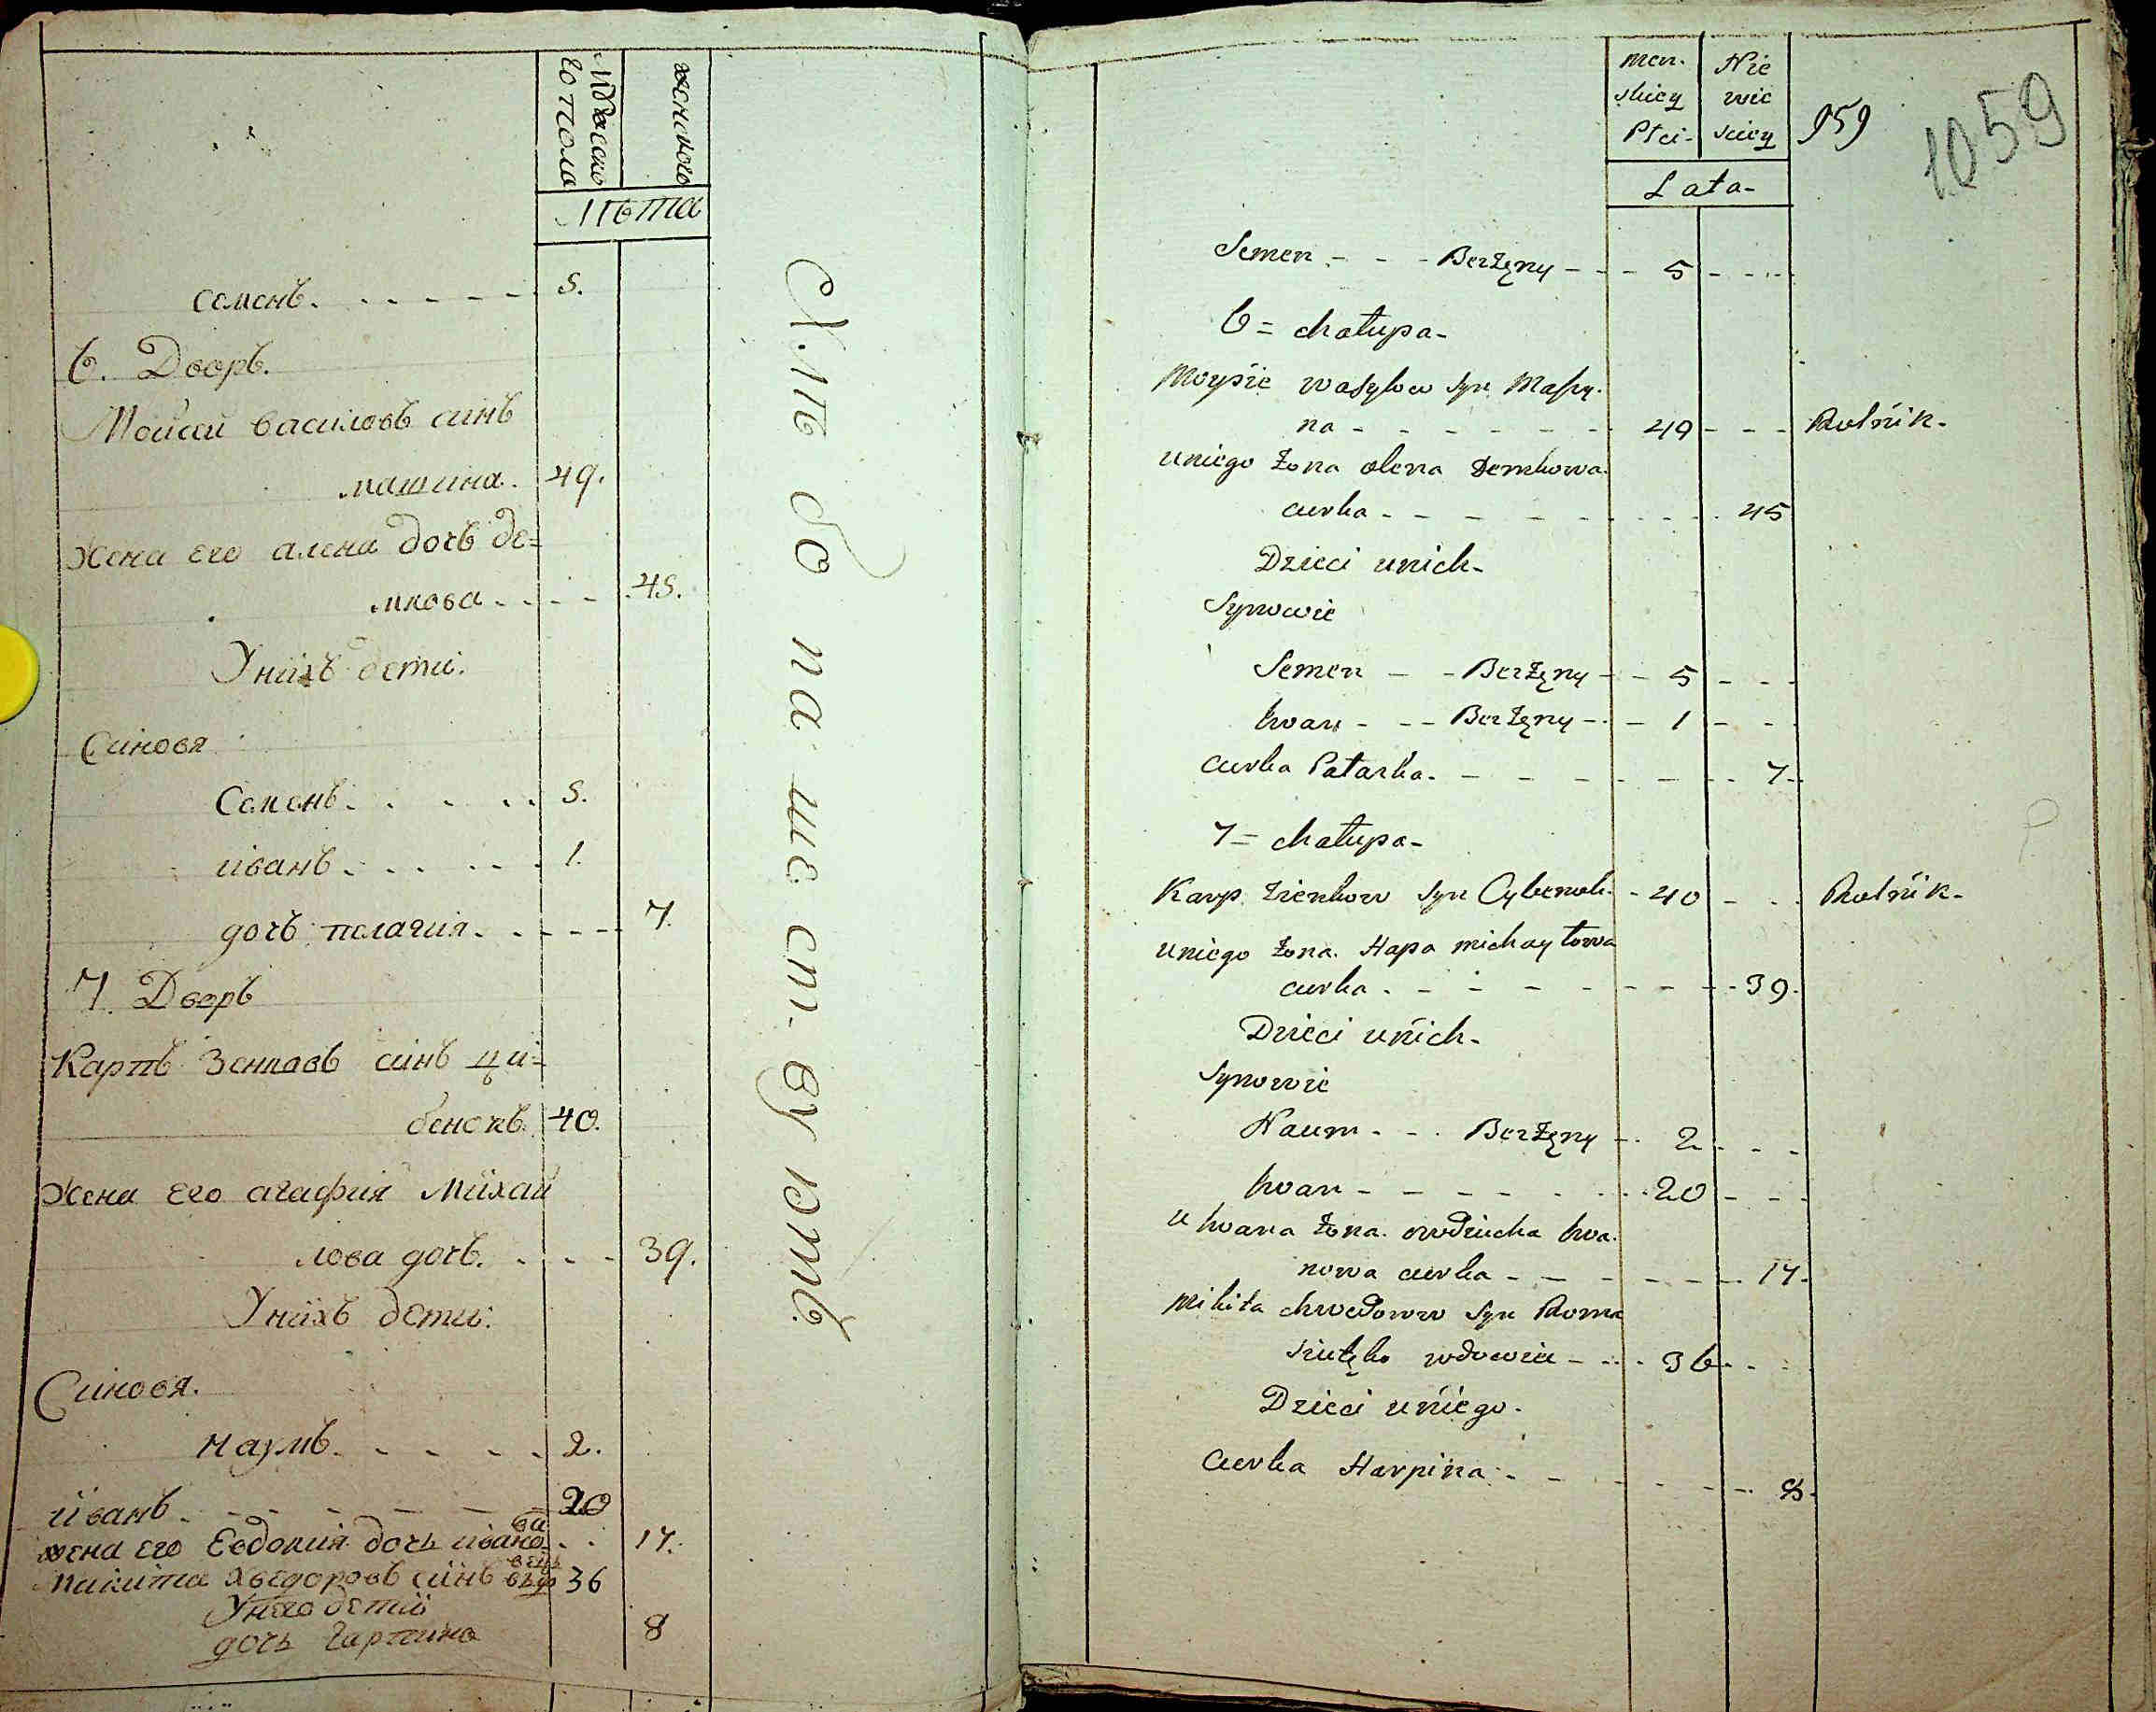 мужеско
го пола
женского
лѣта
семенъ. 5.
6. Дворъ.
Мойсей василовъ синъ
машина. 49.
Жена его алена дочъ де=
мкова 45.
Унихъ дети.
Синовя
Семенъ. 5.
иванъ. 1.
дочъ пелагия. 7.
7. Дворъ
Карпъ Зенковъ синъ ци=
бенокъ. 40.
Жена его агафия Михай
лова дочъ. 39.
Унихъ дети:
Синовя.
Наумъ. 2.
иванъ. 20
жена его Евдокия дочь ивано
ва 17.
Микита Хведоровъ синъ 36
Унего дети
дочь Гарпина 8
Хлѣбопашествуютъ
men. Nie
skiey wie
Płci- sciey
959
1059
Lata-
Semen - - - Berżęny - - 5 - - -
6 = chałupa-
Moysie wasylow syn Maszy.
na - - - - - - 49 - - - Rolnik-
uniego żona olena Demkowa
curka - - - - - - 45
Dzieci unich-
Synowie
Semen - - Berżęny - - 5 - - -
Iwan - - - Berżęny - - 1 - -
curka Patarka. - - - - - - 7-
7 = chałupa-
Karp Zienkow syn Cybenok - 40 - - Rolnik-
uniego żona. Hapa michayłowa
curka. - - - - - - - 39.
Dzieci unich-
Synowie
Naum - - - Berżęny - - 2 - - -
Iwan - - - - - - - 20 - - -
u Iwana żona. owdziucha Iwa.
nowa curka - - - - - - 17.
Mikita chwedorow syn Roma
sziuteko wdowiec - - - 36 - - -
Dzieci uniego.
Curka Harpina - - - - - - 8.